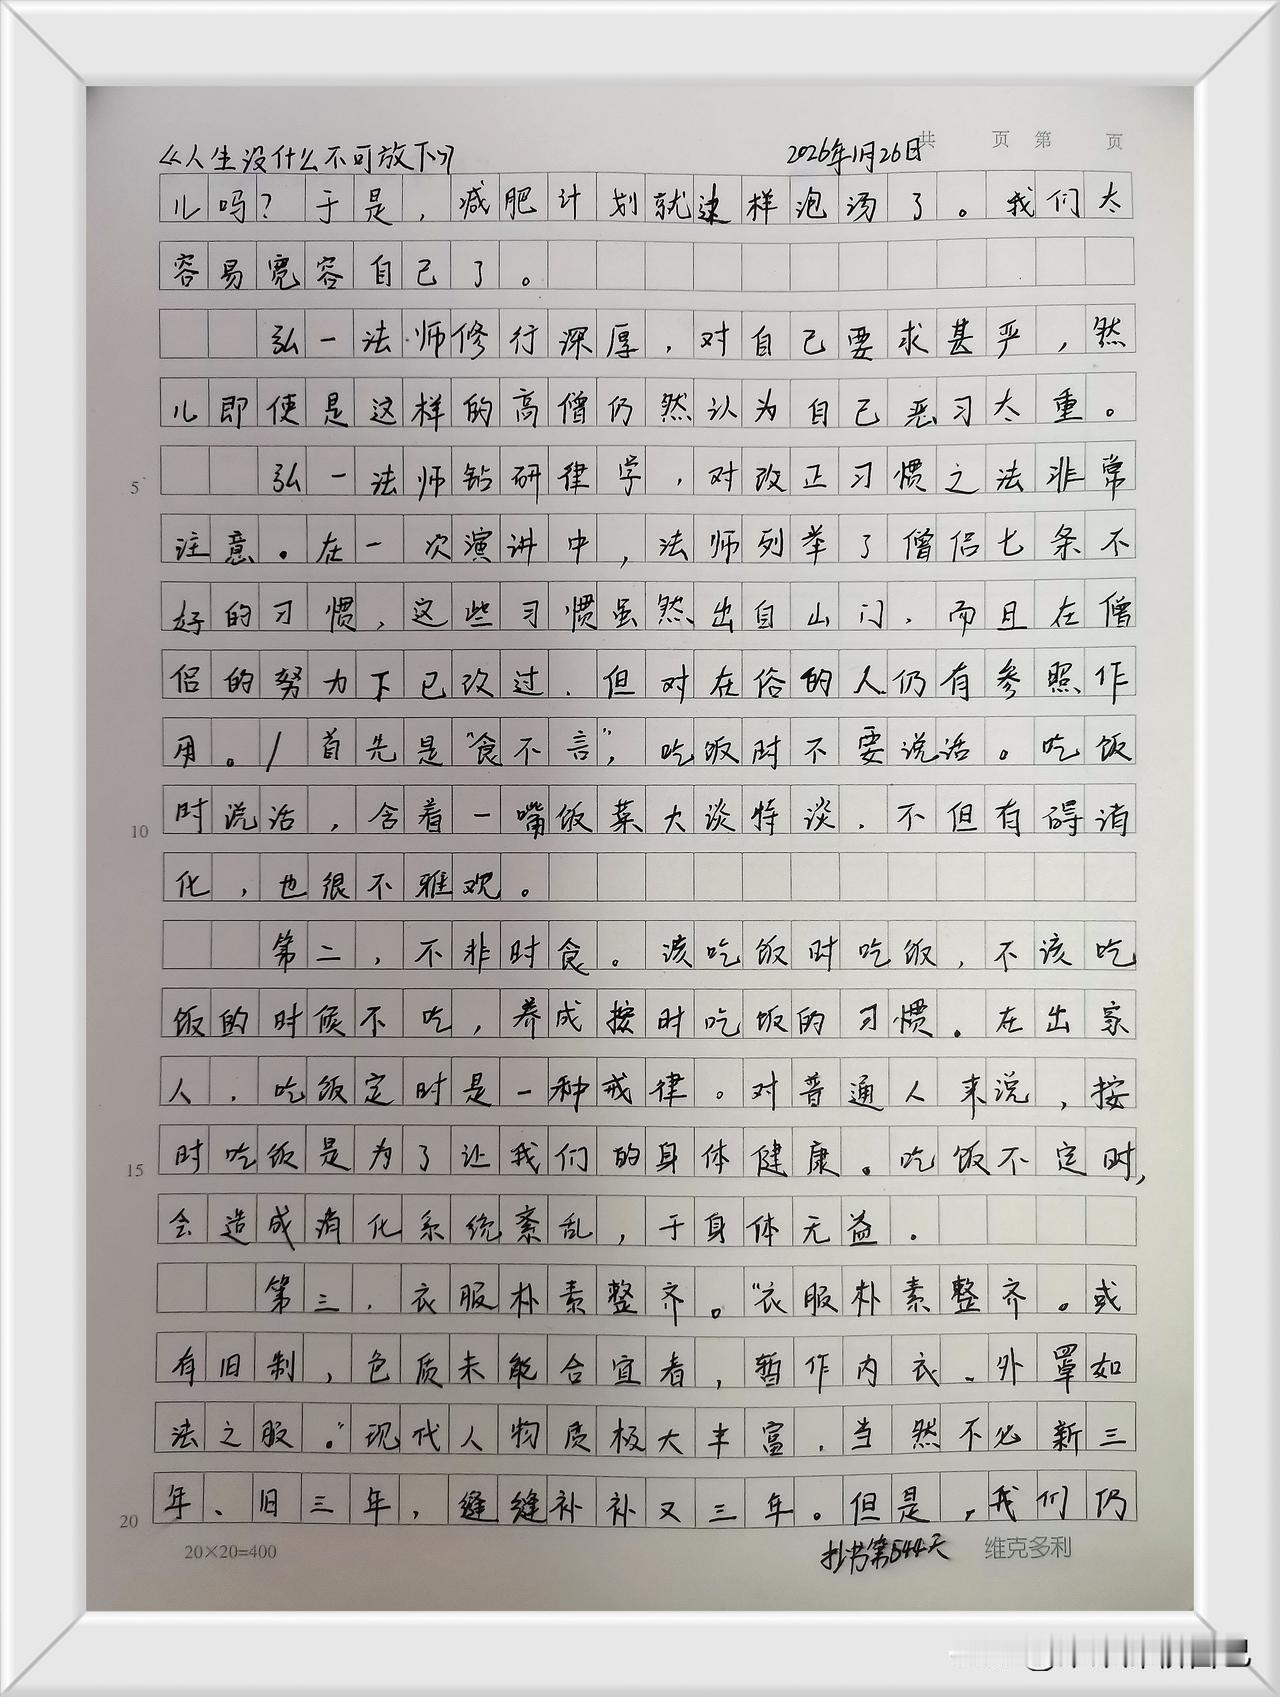 共 页 第 页
《人生没什么不可放下》 2026年1月26日
儿吗？于是，减肥计划就这样泡汤了。我们太
容易宽容自己了。
弘一法师修行深厚，对自己要求甚严，然
儿即使是这样的高僧仍然认为自己恶习太重。
5 弘一法师钻研律学，对改正习惯之法非常
注意。在一次演讲中，法师列举了僧侣七条不
好的习惯，这些习惯虽然出自山门，而且在僧
侣的努力下已改过，但对在俗的人仍有参照作
用。/首先是“食不言”，吃饭时不要说话。吃饭
10 时说话，含着一嘴饭菜大谈特谈，不但有碍消
化，也很不雅观。
第二，不非时食。该吃饭时吃饭，不该吃
饭的时候不吃，养成按时吃饭的习惯。在出家
人，吃饭定时是一种戒律。对普通人来说，按
15 时吃饭是为了让我们的身体健康。吃饭不定时，
会造成消化系统紊乱，于身体无益。
第三，衣服朴素整齐。“衣服朴素整齐。或
有旧制，色质未能合宜者，暂作内衣、外罩如
法之服。”现代人物质极大丰富，当然不必新三
20 年、旧三年，缝缝补补又三年。但是，我们仍
20×20=400 抄书第544天 维克多利